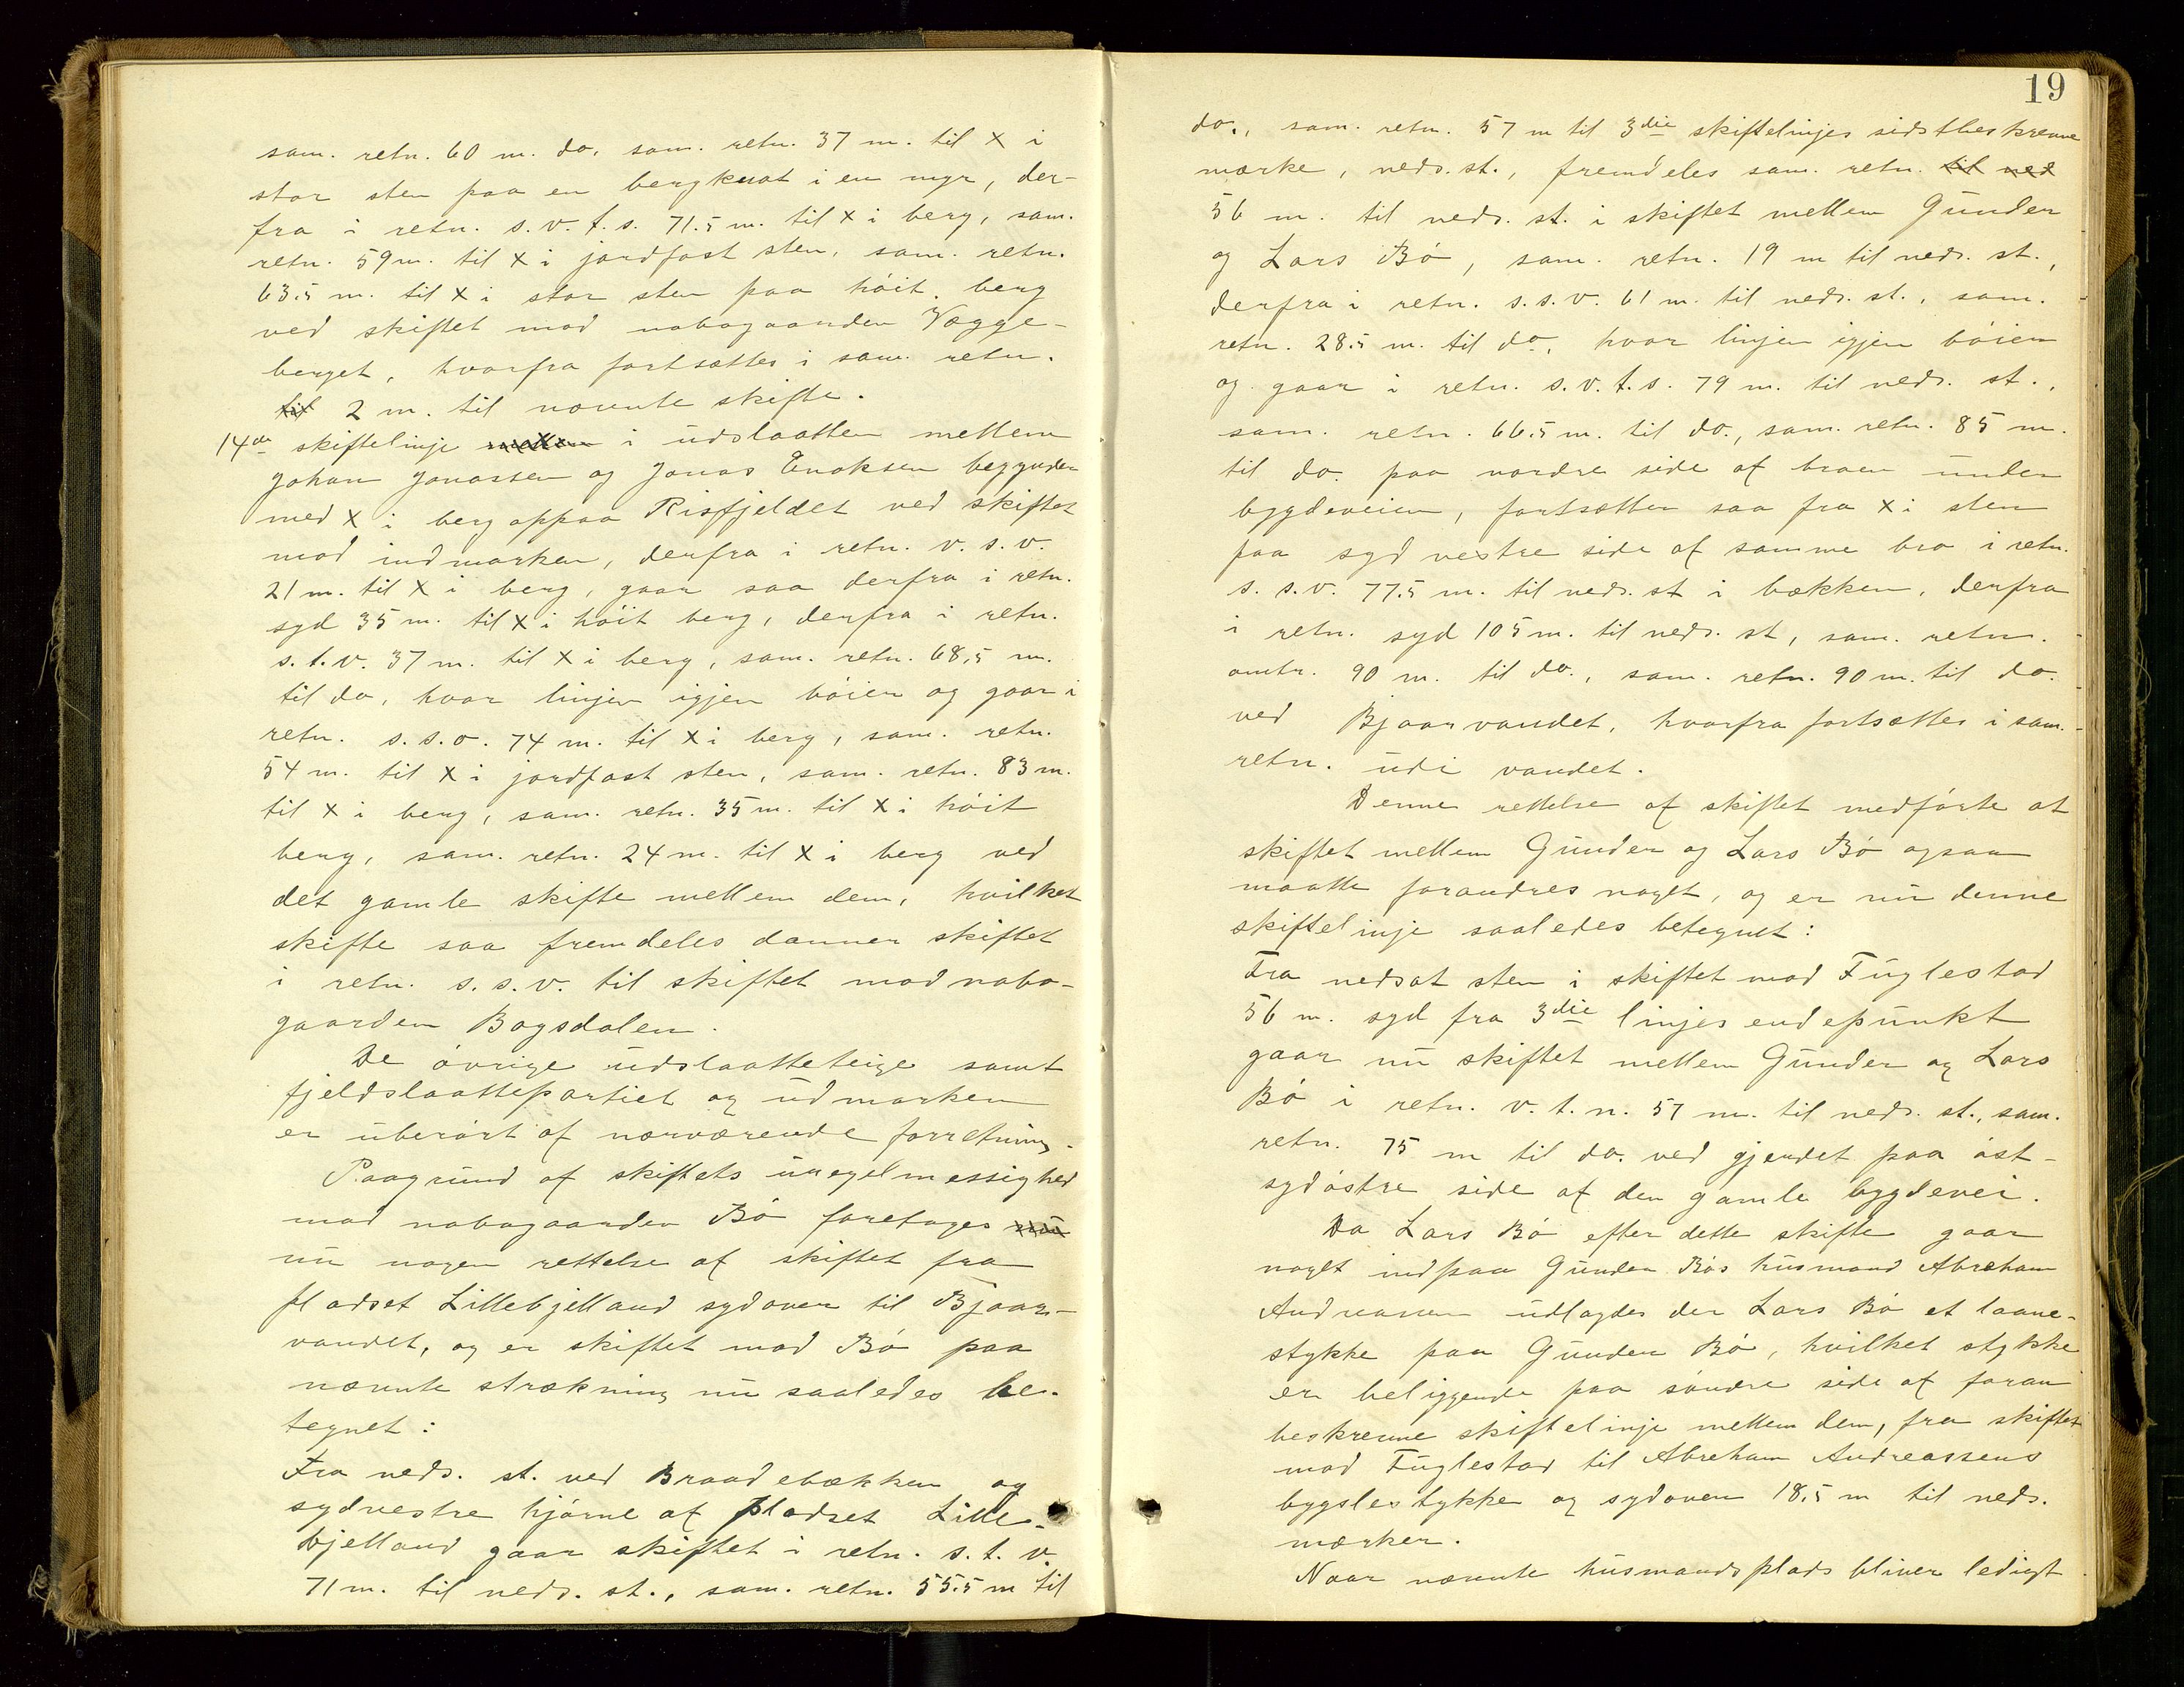 sam. retn. 60 m. do. sam. retn. 37 m. til x i
stor sten paa en bergknat i en myr, der-
fra i retn. s. v. t. s. 71.5 m. til x i berg, sam.
retn. 59 m. til x i jordfast sten, sam. retn.
63.5 m. til x i stor sten paa höit berg
ved skiftet mod nabogaarden Vægge-
berget, hvorfra fortsættes i sam. retn.
til 2 m. til nævnte skifte.
14de skiftelinje mellem i üdslaatten mellem
Johan Jonassen og Jonas Enoksen begynder
med x i berg oppaa Risfjeldet ved skiftet
mod indmarken, derfra i retn. v. s. v.
21 m. til x i berg, gaar saa derfra i retn.
syd 35 m. til x i höit berg, derfra i retn.
s. t. v. 37 m. til x i berg, sam. retn. 68,5 m.
til do, hvor linjen igjen böier og gaar i
retn. s. s. o. 74 m. til x i berg, sam. retn.
54 m. til x i jordfast sten, sam. retn. 83 m.
til x i berg, sam. retn. 35 m. til x i höit
berg, sam. retn. 24 m. til x i berg ved
det gamle skifte mellem dem, hvilket
skifte saa fremdeles danner skiftet
i retn. s. s. v. til skiftet mod nabo-
gaarden Bogsdalen.
De övrige üdslaatteteige samt
fjeldslaattepartiet og üdmarken
er überört af nærværende forretning.
Paagründ af skiftets üregelmessighed
mod nabogaarden Bö foretages nü
nü nogen rettelse af skiftet fra
pladset Lillebjelland sydover til Bjaar-
vandet, og er skiftet mod Bö paa
nævnte strækning nü saaledes be-
tegnet:
Fra neds. st. ved Braadebækken og
sydvestre hjörne af pladset Lille-
bjelland gaar skiftet i retn. s. t. v.
71 m. til neds. st., sam. retn. 55.5 m til
19
do., sam. retn. 57 m til 3die skiftelinjes sidstbeskrevne
mærke, neds. st., fremdeles sam. retn. til ned
56 m. til neds. st. i skiftet mellem Günder
og Lars Bö, sam. retn. 19 m til neds. st.,
derfra i retn. s. s. v. 61 m. til neds. st., sam.
retn. 28.5 m. til do, hvor linjen igjen böier
og gaar i retn. s. v. t. s. 79 m. til neds. st.,
sam. retn. 66.5 m. til do., sam. retn. 85 m.
til do. paa nordre side af broen ünder
bygdeveien, fortsætter saa fra x i sten
paa sydvestre side af samme bro i retn.
s. s. v. 77.5 m. til neds. st i bækken, derfra
i retn. syd 105 m. til neds. st, sam. retn.
omtr. 90 m. til do., sam. retn. 90 m. til do.
ved Bjaarvandet, hvorfra fortsættes i sam.
retn. üdi vandet.
Denne rettelse af skiftet medförte at
skiftet mellem Günder og Lars Bö ogsaa
maatte forandres noget, og er nü denne
skiftelinje saaledes betegnet:
Fra nedsat sten i skiftet mod Füglestad
56 m. syd fra 3die linjes endepünkt
gaar nü skiftet mellem Günder og Lars
Bö i retn. v. t. n. 57 m. til neds. st., sam.
retn. 75 m til do. ved gjerdet paa öst-
sydöstre side af den gamle bygdevei.
Da Lars Bö efter dette skifte gaar
noget indpaa Günder Bös hüsmand Abreham
Andreassen üdlagdes der Lars Bö et laane-
stykke paa Günder Bö, hvilket stykke
er beliggende paa söndre side af foran
beskrevne skiftelinje mellem dem, fra skiftet
mod Füglestad til Abreham Andreassens
bygslestykke og sydover 18.5 m til neds.
mærker.
Naar nævnte hüsmandsplads bliver ledigt